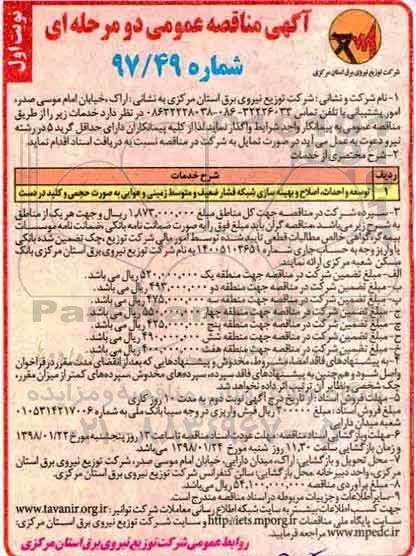 نوبت اول
آگهی مناقصه عمومی دو مرحله ای
شماره ۹۷/۴۹
شرکت توزیع نیروی برق استان مرکزی
۱-نام شرکت و نشانی: شرکت توزیع نیروی برق استان مرکزی به نشانی: اراک، خیابان امام موسی صدر،
امور پشتیبانی با تلفن تماس ۳۲۲۲۶۰۳۳-۰۸۶ ۰۸۶۳۲۲۲۸۰۳۸ در نظر دارد خدمات زیر را از طریق
مناقصه عمومی به پیمانکار واجد شرایط واگذار نماید لذا از کلیه پیمانکاران دارای حداقل گرید ۵ در رشته
نیرو دعوت به عمل می آید در صورت تمایل به شرکت در مناقصه نسبت به دریافت اسناد اقدام نمایند.
۲-شرح مختصری از خدمات
ردیف شرح خدمات
۱ توسعه و احداث، اصلاح و بهینه سازی شبکه فشار ضعیف و متوسط زمینی و هوایی به صورت حجمی و کلید در دست
۳-سپرده شرکت در مناقصه جهت کل مناطق مبلغ ۱،۸۷۳،۰۰۰،۰۰۰ ریال و جهت هر یک از مناطق
به شرح زیر می باشد. مناقصه گران باید مبلغ فوق را به صورت ضمانت نامه بانکی، ضمانت نامه موسسات
بیمه گر، گواهی خالص مطالبات قطعی تایید شده توسط امور مالی شرکت توزیع، چک تضمین شده بانکی
یا واریز وجه به حساب جاری شماره ۱۴۰۰۵۱۰۳۶۵۱ به نام شرکت توزیع نیروی برق استان مرکزی بانک
مسکن شعبه مرکزی ارائه نمایند.
الف-مبلغ تضمین شرکت در مناقصه جهت منطقه یک ۵۲۰،۰۰۰،۰۰۰ ریال می باشد.
ب-مبلغ تضمین شرکت در مناقصه جهت منطقه دو ۴۹۳،۰۰۰،۰۰۰ ریال می باشد.
پ-مبلغ تضمین شرکت در مناقصه جهت منطقه سه ۲۷۵،۰۰۰،۰۰۰ ریال می باشد.
ج-مبلغ تضمین شرکت در مناقصه جهت منطقه چهار ۵۵۰،۰۰۰،۰۰۰ ریال می باشد.
چ-مبلغ تضمین شرکت در مناقصه جهت منطقه پنج ۴۲۵،۰۰۰،۰۰۰ ریال می باشد.
ح-مبلغ تضمین شرکت در مناقصه جهت منطقه شش ۴۰۰،۰۰۰،۰۰۰ ریال می باشد.
خ-مبلغ تضمین شرکت در مناقصه جهت منطقه هفت ۴۰۰،۰۰۰،۰۰۰ ریال می باشد.
۴-به پیشنهادهای فاقد امضاء، مشروط، مخدوش و پیشنهادهایی که بعد از انقضای مدت مقرر در فراخوان
واصل شود و همچنین به پیشنهادهای فاقد سپرده، سپرده های مخدوش، سپرده های کمتر از میزان مقرر،
چک شخصی و نظایر آن ترتیب اثر داده نخواهد شد.
۵-مهلت فروش اسناد: از تاریخ درج آگهی نوبت دوم به مدت ۱۰ روز کاری
مبلغ فروش اسناد: مبلغ ۴۰۰۰۰۰ ریال فیش واریزی در وجه سیبا بانک ملی به شماره ۰۱۰۵۳۱۴۲۱۷۰۰۶
شعبه میدان دارایی.
۶-مهلت و بازگشایی اسناد مناقصه: مهلت عودت اسناد مناقصه تا ساعت ۱۳ روز پنجشنبه مورخ ۱۳۹۸/۰۱/۲۲
و زمان بازگشایی ساعت ۱۱،۳۰ روز شنبه مورخ ۱۳۹۸/۰۱/۲۴ می باشد.
۷-محل تحویل و بازگشایی: اراک، میدان دارایی، خیابان امام موسی صدر، شرکت توزیع نیروی برق استان
مرکزی، واحد دبیرخانه، محل بازگشایی: سالن کنفرانس شرکت توزیع نیروی برق استان مرکزی
۸-مبلغ برآوردی مناقصه ۵۴،۱۰۰،۰۰۰،۰۰۰ ریال می باشد.
۹-سایر اطلاعات و جزییات مربوطه در اسناد مناقصه مندرج است.
جهت کسب اطلاعات بیشتر به سایت شبکه اطلاع رسانی معاملات شرکت توانیر: www.tavanir.org.ir
وسایت پایگاه ملی مناقصات http://iets.mporg.ir و سایت شرکت توزیع نیروی برق استان مرکزی:
www.mpedc.ir مراجعه فرمایید.
روابط عمومی شرکت توزیع نیروی برق استان مرکزی